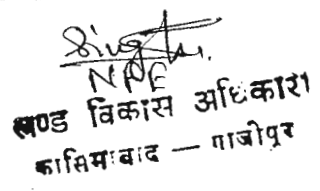 NPE
खण्ड विकास अधिकारी
कासिमाबाद - गाजीपुर